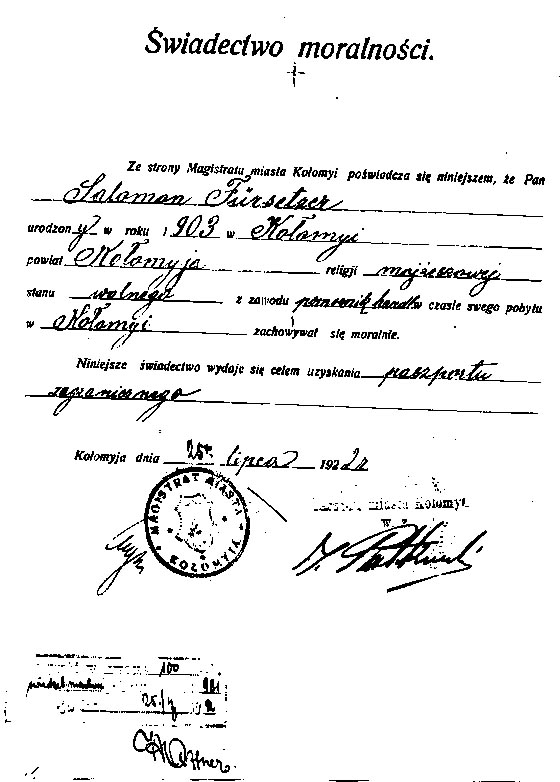 Świadectwo moralności.
Ze strony Magistratu miasta Kołomyi poświadcza się niniejszem, że Pan
Salomon Fürsetzer
urodzony w roku 1903 w Kołomyi
powiat Kołomyja religji mojżeszowej
stanu wolnego z zawodu pomocnik handl w czasie swego pobytu
w Kołomyi zachowywał się moralnie.
Niniejsze świadectwo wydaje się celem uzyskania paszportu
zagranicznego
Kołomyja dnia 25 lipca 1922 r
MAGISTRAT MIASTA KOŁOMYJA
miasta Kołomyi
W z.
100
25/7